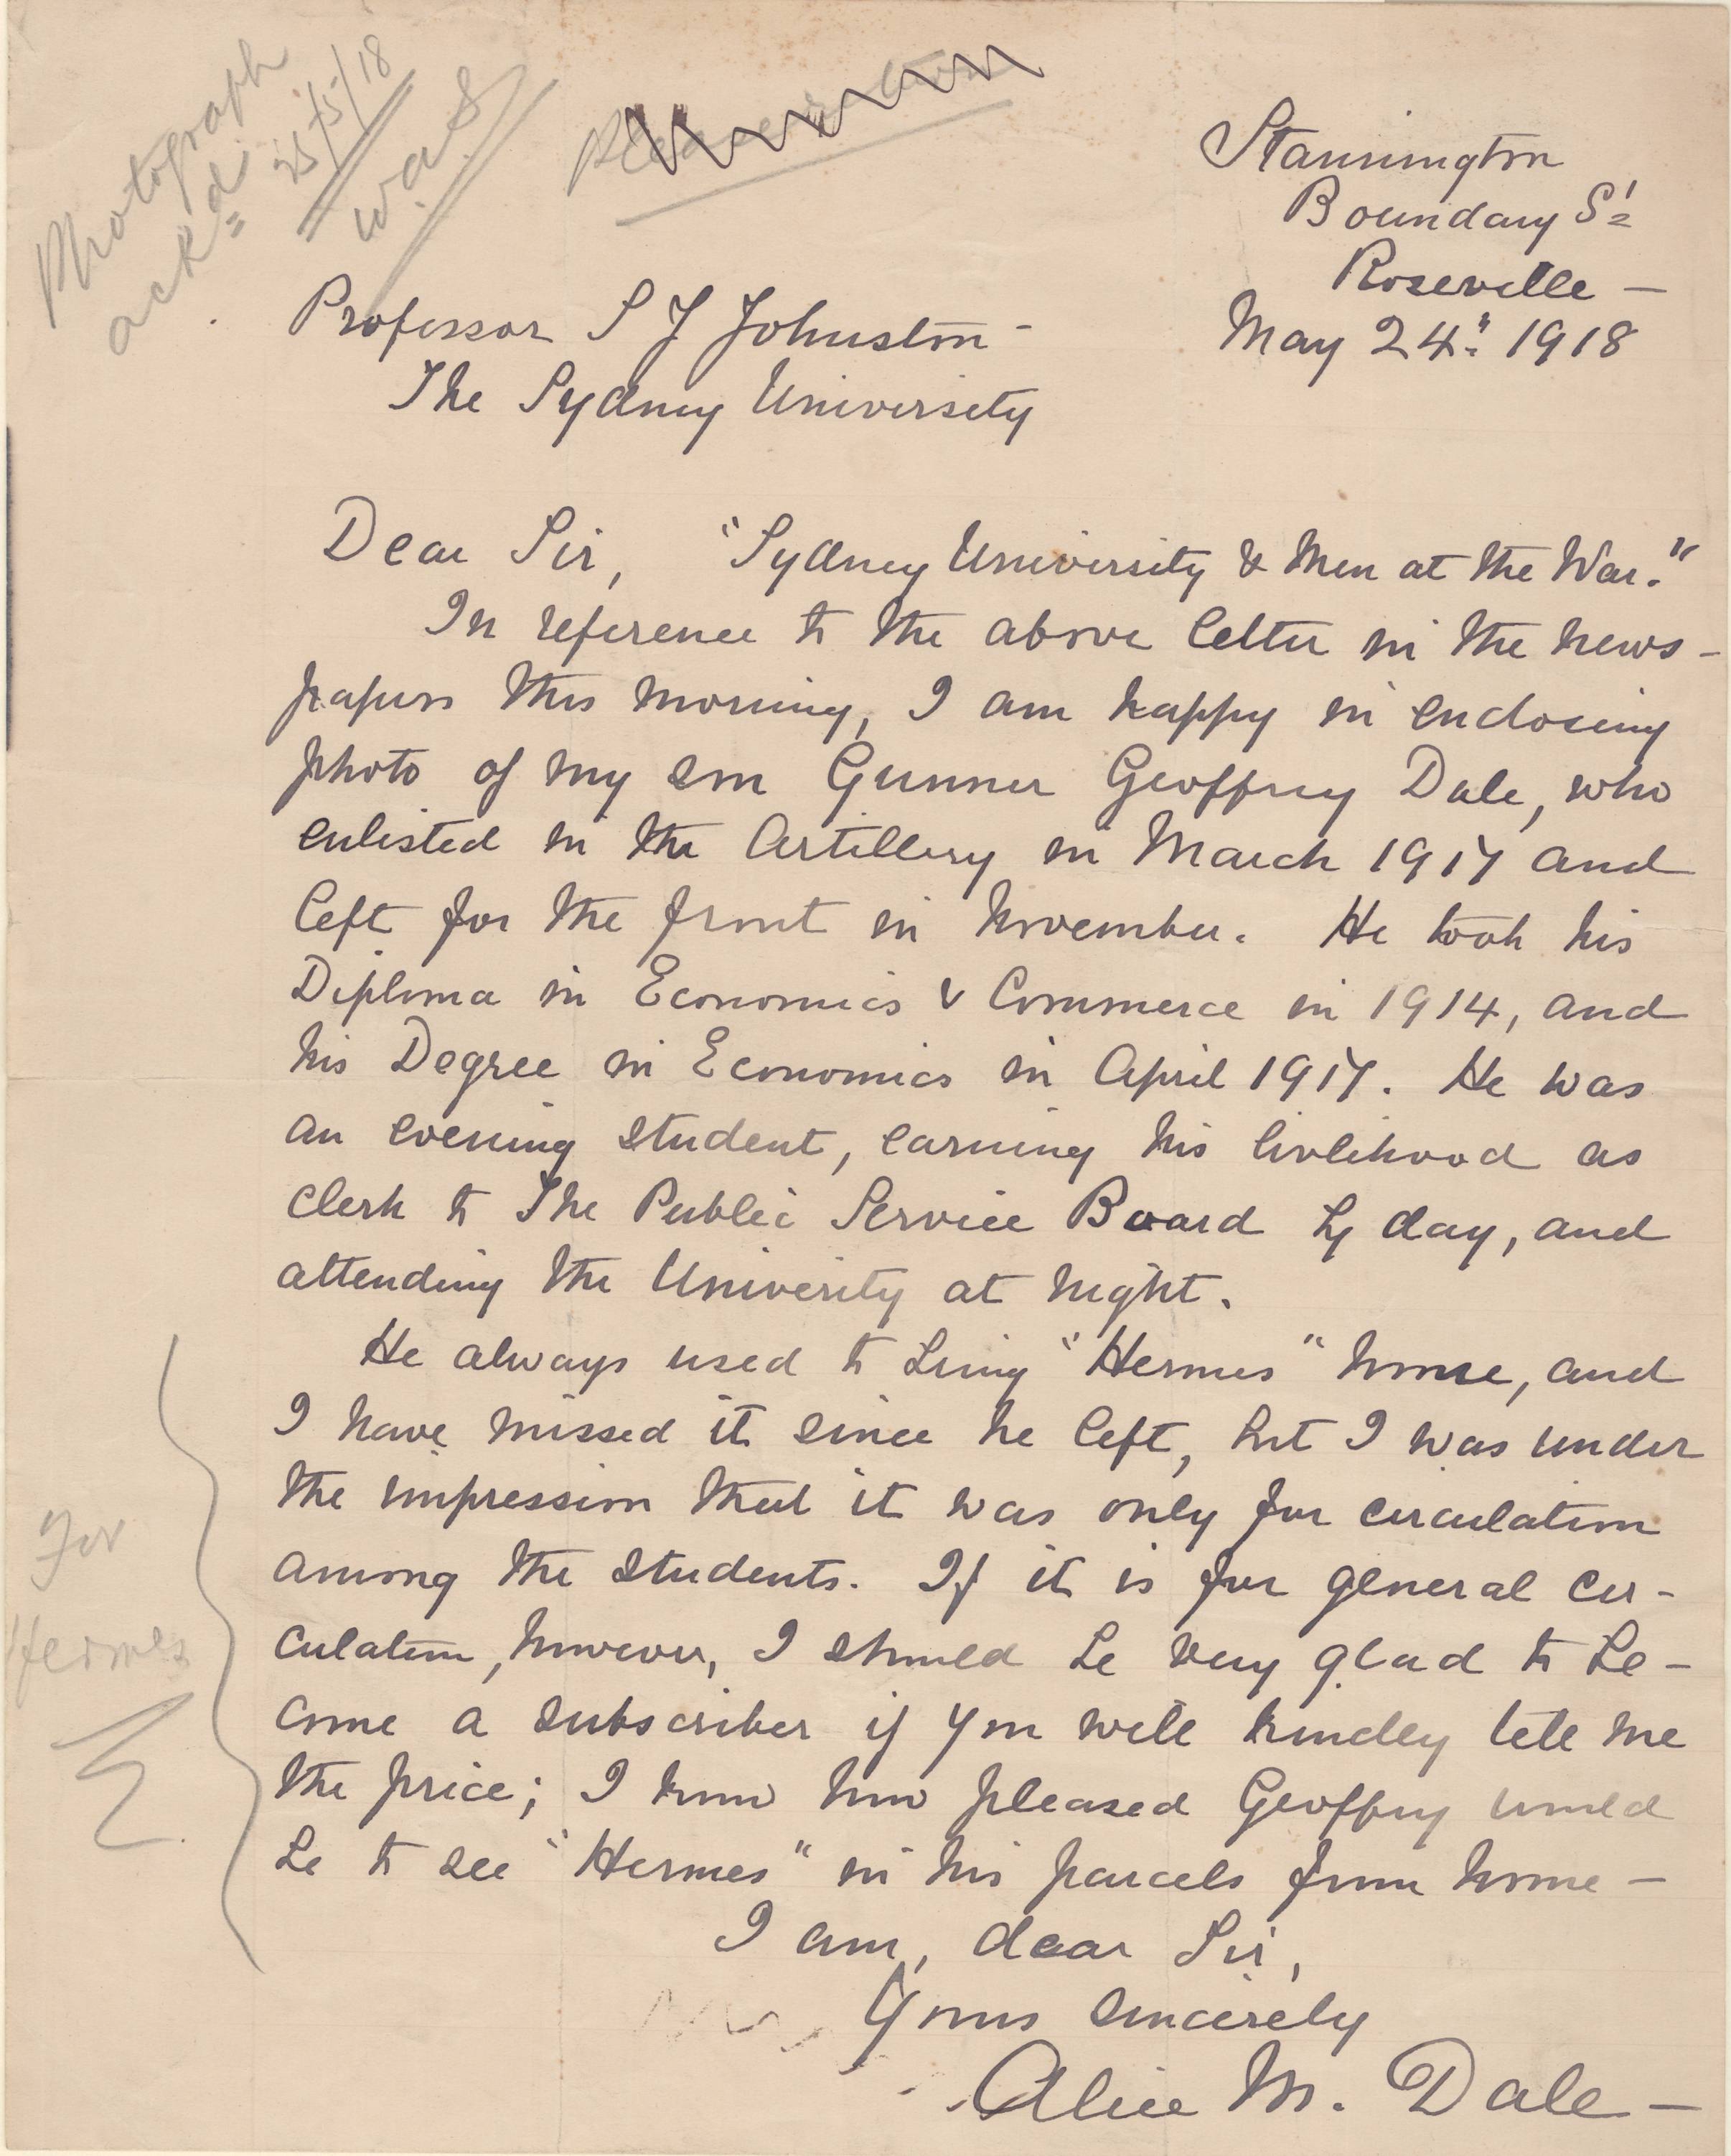 Photograph
ackd 25/5/18
Please
Stannington
Boundary St
Roseville —
May 24th 1918
Professor S J Johnston -
The Sydney University
Dear Sir, "Sydney University & Men at the War."
In reference to the above letter in the news-
papers this morning, I am happy in enclosing
photo of my son Gunner Geoffrey Dale, who
enlisted in the Artillery in March 1917 and
left for the front in November. He took his
Diploma in Economics & Commerce in 1914, and
his Degree in Economics in April 1917. He was
an evening student, earning his livlihood as
clerk to The Public Service Board by day, and
attending the Univerity at night.
He always used to bring "Hermes" home, and
I have missed it since he left, but I was under
the impression that it was only for circulation
among the students. If it is for general cir-
culation, however, I should be very glad to be-
come a subscriber if you will kindly tell me
the price; I know how pleased Geoffrey would
be to see "Hermes" in his parcels from home —
I am, dear Sir,
Yours sincerely
Alice M. Dale —
For
Hermes